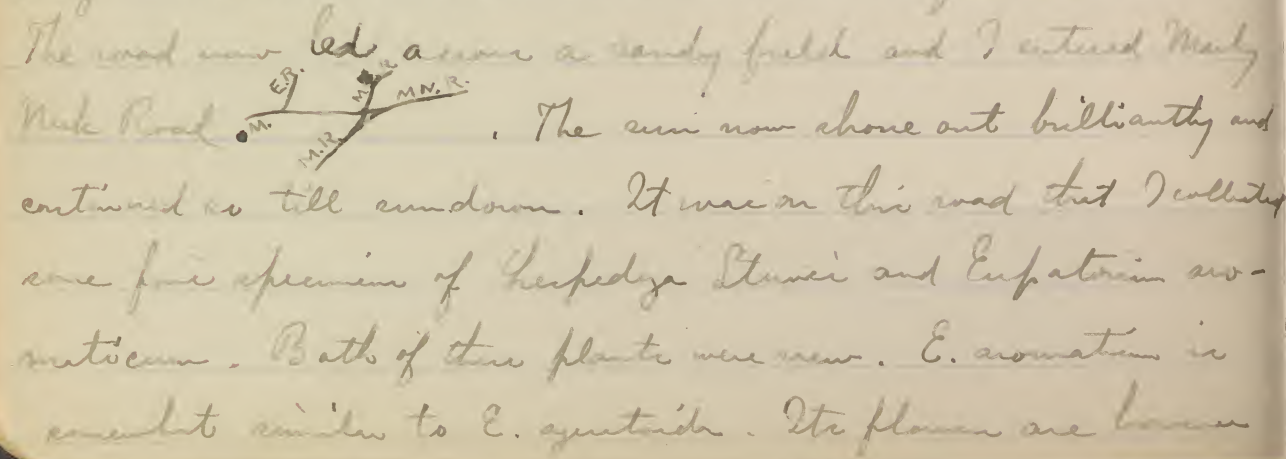 The road now led across a sandy field and I entered Marly
E.R. M.R. MN. R.
Neck Road M. . The sun now shone out brilliantly and
M.R.
continued so till sundown. It was on this road that I collected
some fine specimens of Lespedeza Stuvei and Eupatorium aro-
maticum. Both of these plants were new. E. aromaticum is
somewhat similar to E. ageratoides. Its flowers are